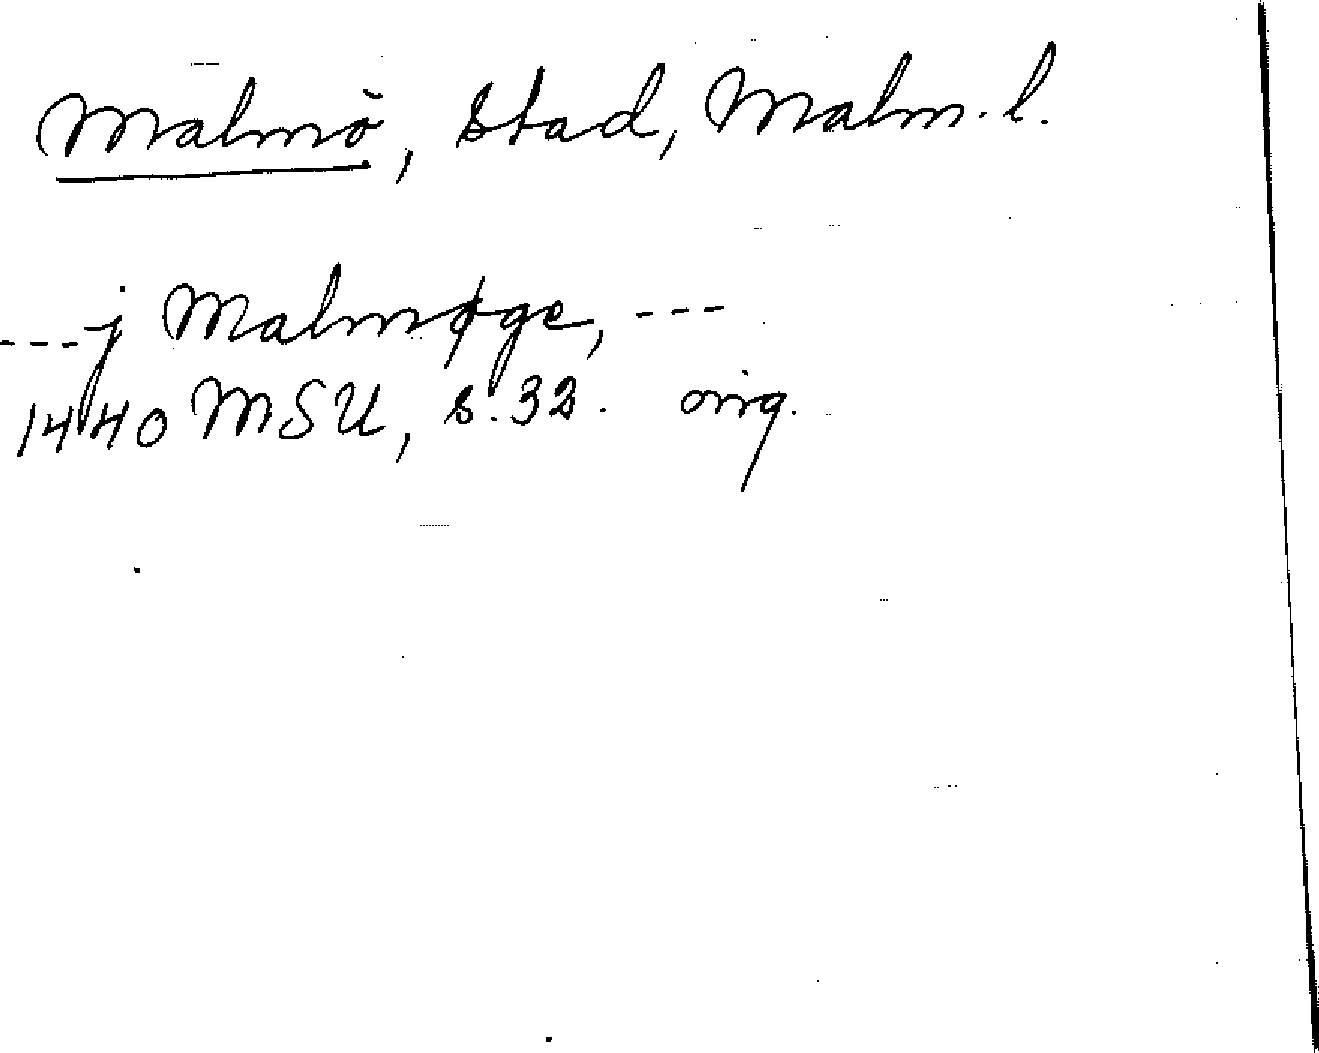 Malmö, Stad, Malm. l.
---j Malmøge, ---
1440 MSU, s. 32. orig.